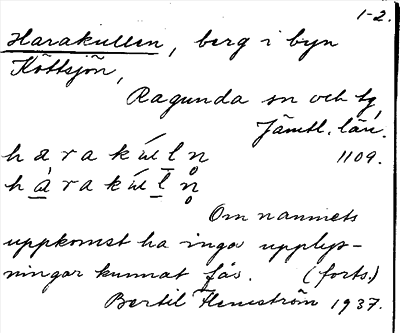 1-2.
Harakullen, berg i byn
Köttsjön,
Ragunda sn och tg,
Jämtl. län.
1109.
Om namnets
uppkomst ha inga upplys-
ningar kunnat fås. (forts.)
Bertil Flemström 1937.